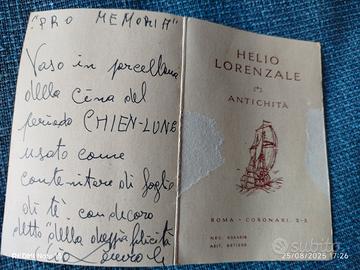 "PRO MEMORIA"
Vaso in porcellana
della Cina del
periodo CHIEN-LUNG
usato come
contenitore di foglie
di tè con decoro
detto "della doppia felicità
HELIO
LORENZALE
ANTICHITÀ
ROMA - CORONARI, 2-3
NEG.
ABIT.
Subito
25/08/2025 17:26